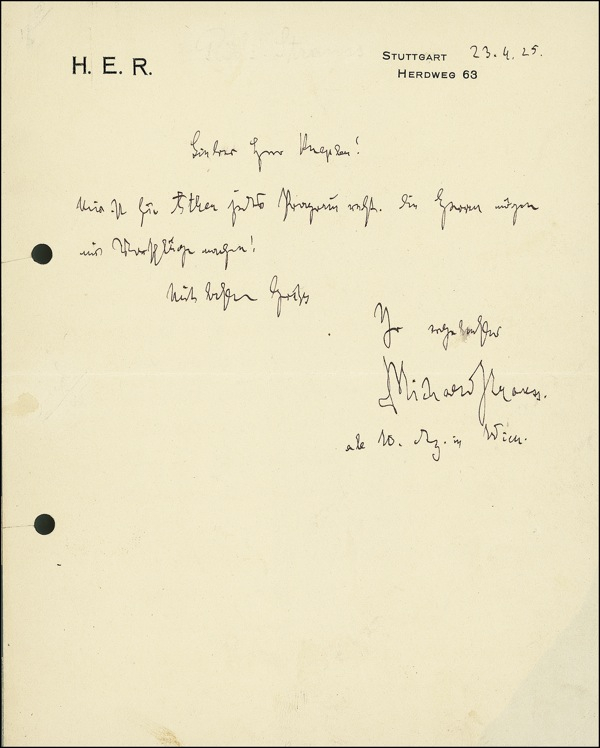 H. E. R.
STUTTGART 23.4.25.
HERDWEG 63
Lieber Herr
Mir ist für Athen jedes Programm recht. Die Herren mögen
mir Vorschläge machen!
Mit besten Grüßen
Ihr ergebenster
Richard Strauss.
10. in Wien.